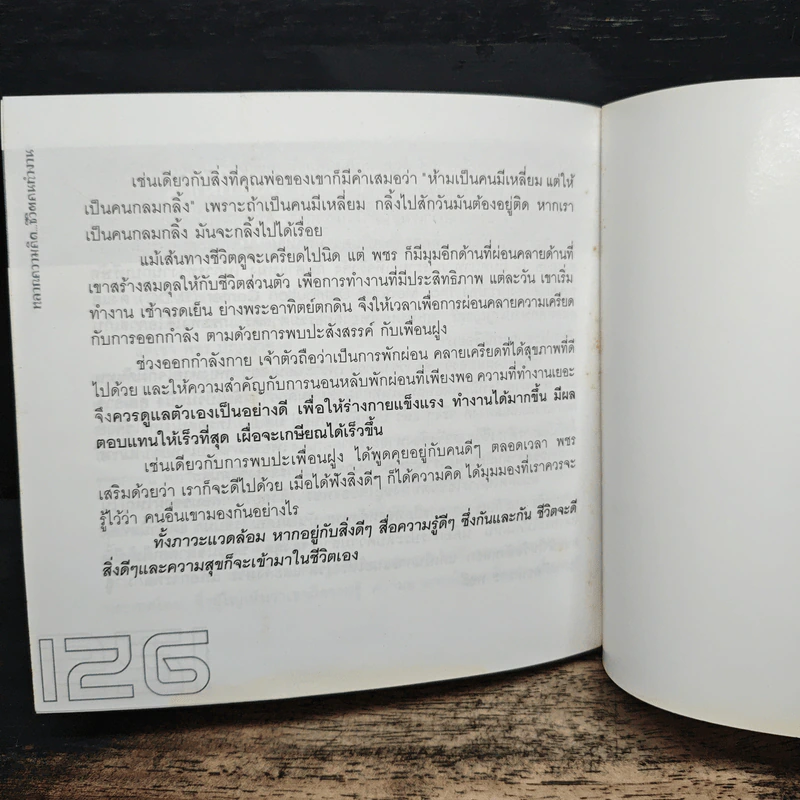 หลากความคิด...ชีวิตคนทำงาน
เช่นเดียวกับสิ่งที่คุณพ่อของเขาก็มีคำเสมอว่า "ห้ามเป็นคนมีเหลี่ยม แต่ให้
เป็นคนกลมกลิ้ง" เพราะถ้าเป็นคนมีเหลี่ยม กลิ้งไปสักวันมันต้องอยู่ติด หากเรา
เป็นคนกลมกลิ้ง มันจะกลิ้งไปได้เรื่อย
แม้เส้นทางชีวิตดูจะเครียดไปนิด แต่ พชร ก็มีมุมอีกด้านที่ผ่อนคลายด้านที่
เขาสร้างสมดุลให้กับชีวิตส่วนตัว เพื่อการทำงานที่มีประสิทธิภาพ แต่ละวัน เขาเริ่ม
ทำงาน เช้าจรดเย็น ย่างพระอาทิตย์ตกดิน จึงให้เวลาเพื่อการผ่อนคลายความเครียด
กับการออกกำลัง ตามด้วยการพบปะสังสรรค์ กับเพื่อนฝูง
ช่วงออกกำลังกาย เจ้าตัวถือว่าเป็นการพักผ่อน คลายเครียดที่ได้สุขภาพที่ดี
ไปด้วย และให้ความสำคัญกับการนอนหลับพักผ่อนที่เพียงพอ ความที่ทำงานเยอะ
จึงควรดูแลตัวเองเป็นอย่างดี เพื่อให้ร่างกายแข็งแรง ทำงานได้มากขึ้น มีผล
ตอบแทนให้เร็วที่สุด เผื่อจะเกษียณได้เร็วขึ้น
เช่นเดียวกับการพบปะเพื่อนฝูง ได้พูดคุยอยู่กับคนดีๆ ตลอดเวลา พชร
เสริมด้วยว่า เราก็จะดีไปด้วย เมื่อได้ฟังสิ่งดีๆ ก็ได้ความคิด ได้มุมมองที่เราควรจะ
รู้ไว้ว่า คนอื่นเขามองกันอย่างไร
ทั้งภาวะแวดล้อม หากอยู่กับสิ่งดีๆ สื่อความรู้ดีๆ ซึ่งกันและกัน ชีวิตจะดี
สิ่งดีๆและความสุขก็จะเข้ามาในชีวิตเอง
126